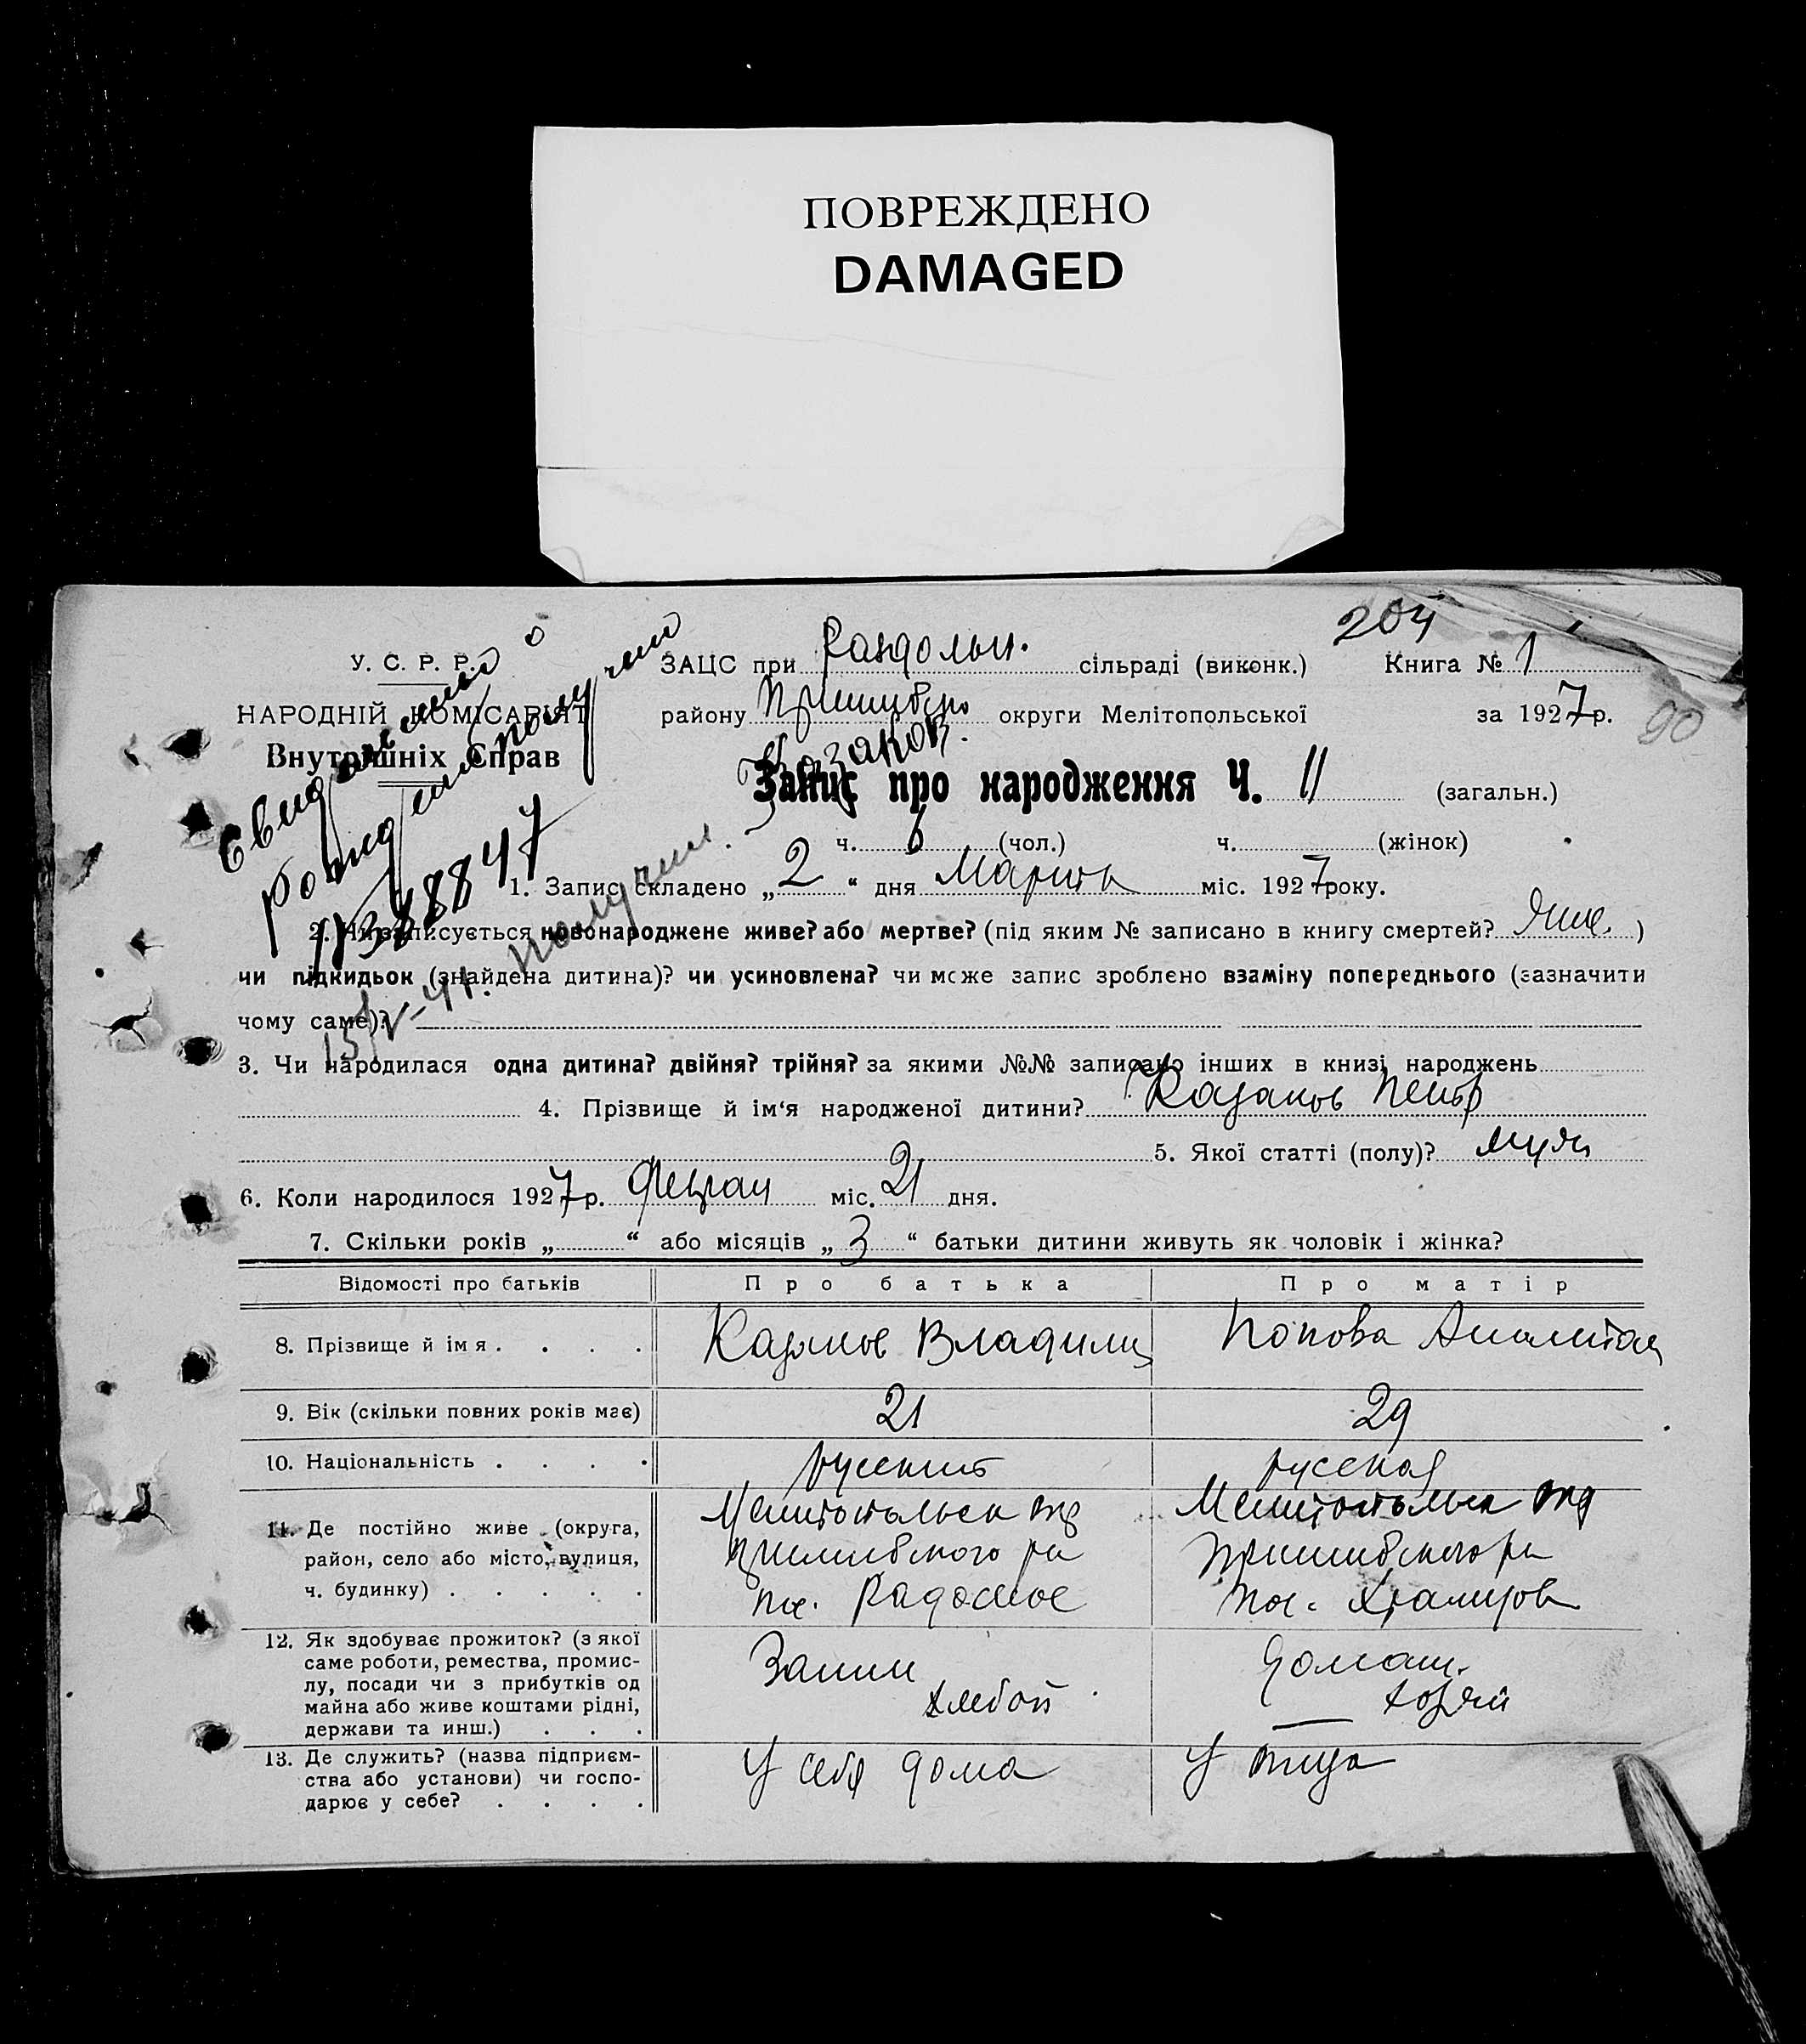 ПОВРЕЖДЕНО
DAMAGED
204
У. С. Р. Р.
НАРОДНІЙ КОМІСАРІЯТ
Внутрішніх Справ
ЗАЦС при Раздольн. сільраді (виконк.) Книга № 1
району округи Мелітопольської за 1927 р.
90
Казаков.
Запис про народження Ч. 11 (загальн.)
ч. 6 (чол.) ч. (жінок)
получил
15/V-41. получил.
1. Запис складено „2“ дня Марта міс. 1927 року.
2. Чи записується новонароджене живе? або мертве? (під яким № записано в книгу смертей? )
чи підкидьок (знайдена дитина)? чи усиновлена? чи може запис зроблено взаміну попереднього (зазначити
чому саме)?
3. Чи народилася одна дитина? двійня? трійня? за якими №№ записано інших в книзі народжень
4. Прізвище й ім‘я народженої дитини? Казаков Петр
5. Якої статті (полу)? муж
6. Коли народилося 1927 р. міс. 21 дня.
7. Скільки років „ “ або місяців „3“ батьки дитини живуть як чоловік і жінка?
Відомості про батьків Про батька Про матір
8. Прізвище й імя . . . . Казаков Владими Попова
9. Вік (скільки повних років має) 21 29
10. Національність . . . . русский русская
11. Де постійно живе (округа,
район, село або місто, вулиця,
ч. будинку) . . . . .
Мелитопольск окр
пришибского ра
пос. Радосное
Мелитопольск окр
Пришибского ра
пос.
12. Як здобуває прожиток? (з якої
саме роботи, ремества, промис-
лу, посади чи з прибутків од
майна або живе коштами рідні,
держави та инш.) . . .
домаш.
хозяй
13. Де служить? (назва підприєм-
ства або установи) чи госпо-
дарює у себе? . . . .
У себя дома
У отца